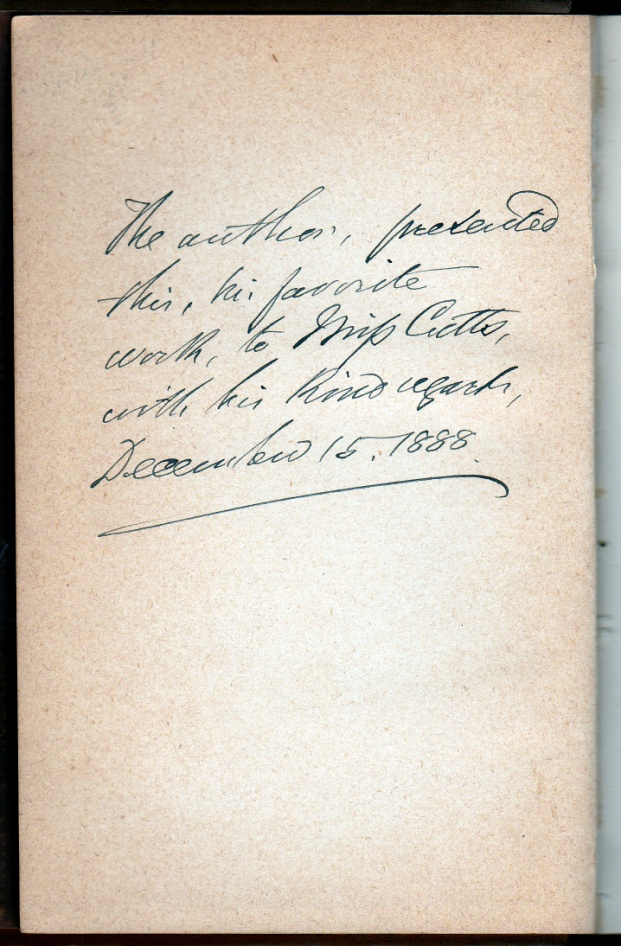 The author, presented
this, his favorite
work, to Miss Cutts,
with his Kind regards,
December 15. 1888.